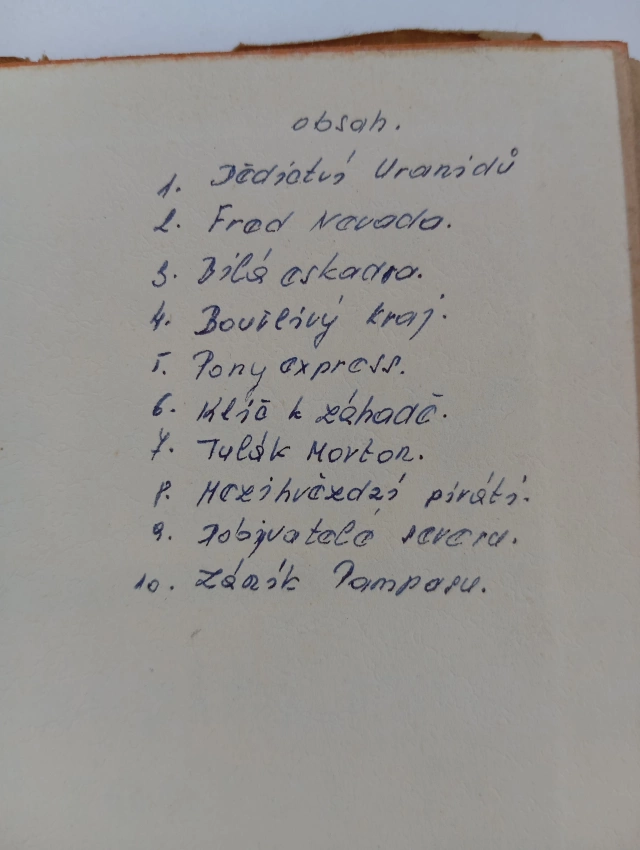 obsah.
1. Dědictví Uranidů
2. Fred Nevada.
3. Bílá eskadra.
4. Bouřlivý kraj.
5. Pony express.
6. Klíč k záhadě.
7. Tulák Morton.
8. Mezihvězdní piráti.
9. Dobyvatelé severu.
10. Zánik Pampasu.